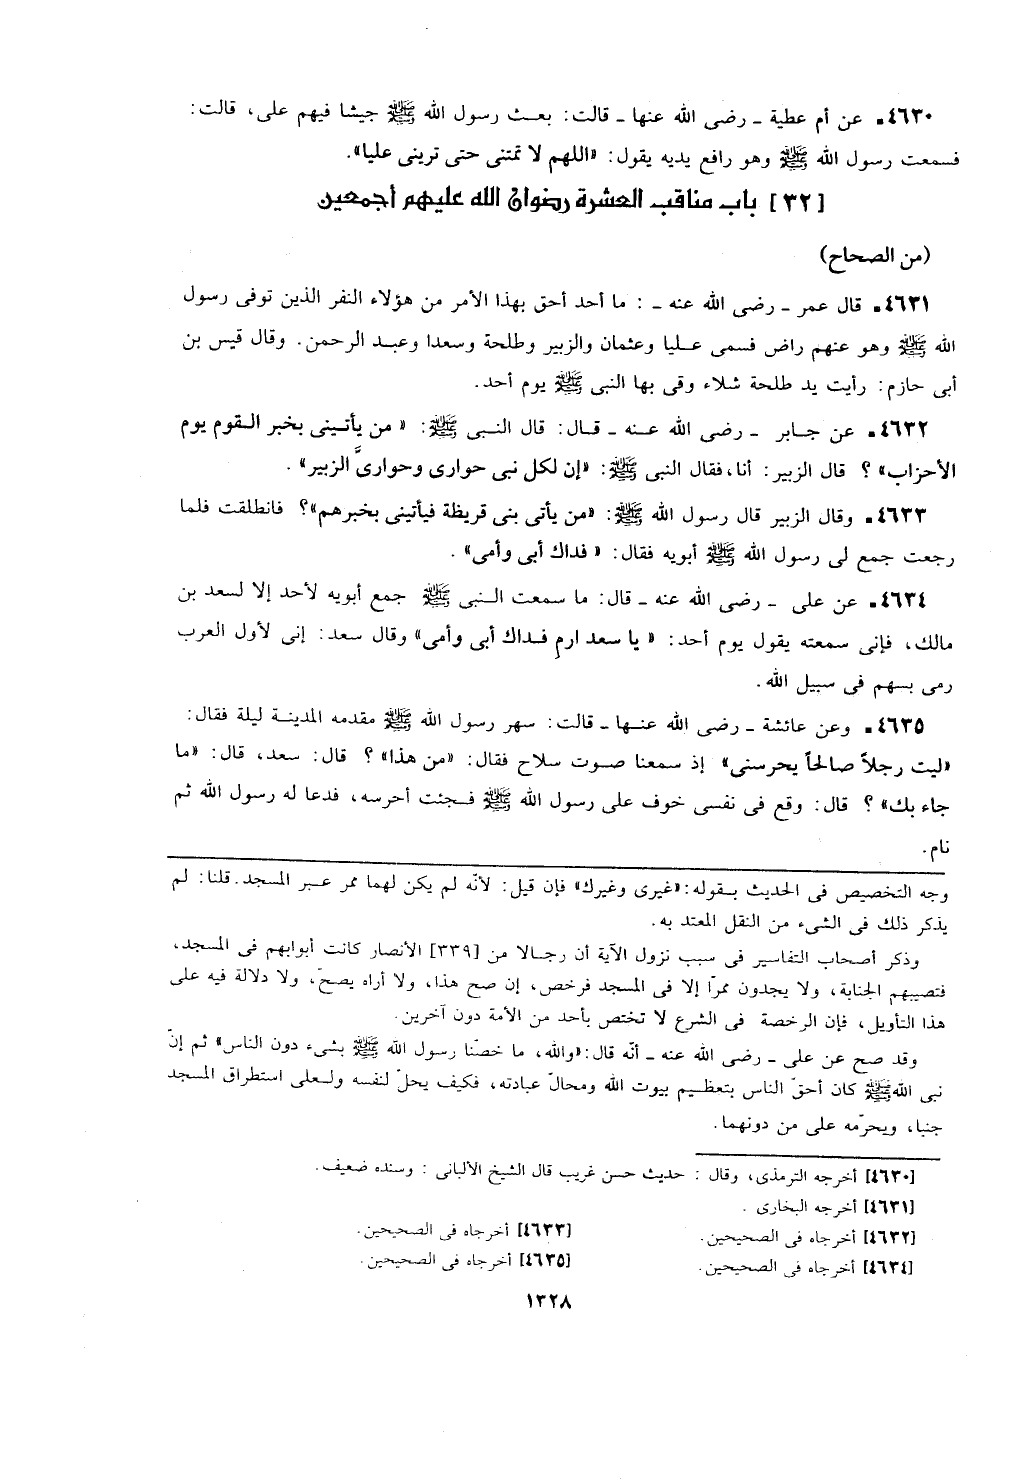 ٤٦٣٠. عن أم عطية ـ رضى الله عنها ـ قالت: بعث رسول الله ﷺ جيشا فيهم على، قالت:
فسمعت رسول الله ﷺ وهو رافع يديه يقول: «اللهم لا تمتنى حتى ترينى عليا».
[٣٢] باب مناقب العشرة رضوان الله عليهم أجمعين
(من الصحاح)
٤٦٣١. قال عمر ـ رضى الله عنه ـ : ما أحد أحق بهذا الأمر من هؤلاء النفر الذين توفى رسول
الله ﷺ وهو عنهم راض فسمى عليا وعثمان والزبير وطلحة وسعدا وعبد الرحمن. وقال قيس بن
أبى حازم: رأيت يد طلحة شلاء وقى بها النبى ﷺ يوم أحد.
٤٦٣٢. عن جابر ـ رضى الله عنه ـ قال: قال النبى ﷺ: « من يأتينى بخبر القوم يوم
الأحزاب» ؟ قال الزبير: أنا، فقال النبى ﷺ: «إن لكل نبى حوارى وحوارىَّ الزبير» .
٤٦٣٣. وقال الزبير قال رسول الله ﷺ: «من يأتى بنى قريظة فيأتينى بخبرهم»؟ فانطلقت فلما
رجعت جمع لى رسول الله ﷺ أبويه فقال: « فداك أبى وأمى» .
٤٦٣٤. عن على ـ رضى الله عنه ـ قال: ما سمعت النبى ﷺ جمع أبويه لأحد إلا لسعد بن
مالك، فإنى سمعته يقول يوم أحد: « يا سعد ارمِ فداك أبى وأمى» وقال سعد: إنى لأول العرب
رمى بسهم فى سبيل الله.
٤٦٣٥. وعن عائشة ـ رضى الله عنها ـ قالت: سهر رسول الله ﷺ مقدمه المدينة ليلة فقال:
«ليت رجلاً صالحاً يحرسنى» إذ سمعنا صوت سلاح فقال: «من هذا» ؟ قال: سعد، قال: «ما
جاء بك» ؟ قال: وقع فى نفسى خوف على رسول الله ﷺ فجئت أحرسه، فدعا له رسول الله ثم
نام.
وجه التخصيص فى الحديث بقوله:«غيرى وغيرك» فإن قيل: لأنّه لم يكن لهما ممر عبر المسجد. قلنا: لم
يذكر ذلك فى الشىء من النقل المعتد به.
وذكر أصحاب التفاسير فى سبب نزول الآية أن رجالا من [٣٣٩] الأنصار كانت أبوابهم فى المسجد،
فتصيبهم الجنابة، ولا يجدون ممرّا إلا فى المسجد فرخص، إن صح هذا، ولا أراه يصحّ، ولا دلالة فيه على
هذا التأويل، فإن الرخصة فى الشرع لا تختص بأحد من الأمة دون آخرين.
وقد صح عن على ـ رضى الله عنه ـ أنّه قال:«والله، ما خصّنا رسول الله ﷺ بشىء دون الناس» ثم إنّ
نبى الله ﷺ كان أحقّ الناس بتعظيم بيوت الله ومحالّ عبادته، فكيف يحلّ لنفسه ولعلى استطراق المسجد
جنبا، ويحرّمه على من دونهما.
[٤٦٣٠] أخرجه الترمذى، وقال : حديث حسن غريب قال الشيخ الألبانى : وسنده ضعيف.
[٤٦٣١] أخرجه البخارى .
[٤٦٣٢] أخرجاه فى الصحيحين. [٤٦٣٣] أخرجاه فى الصحيحين.
[٤٦٣٤] أخرجاه فى الصحيحين. [٤٦٣٥] أخرجاه فى الصحيحين.
١٣٢٨